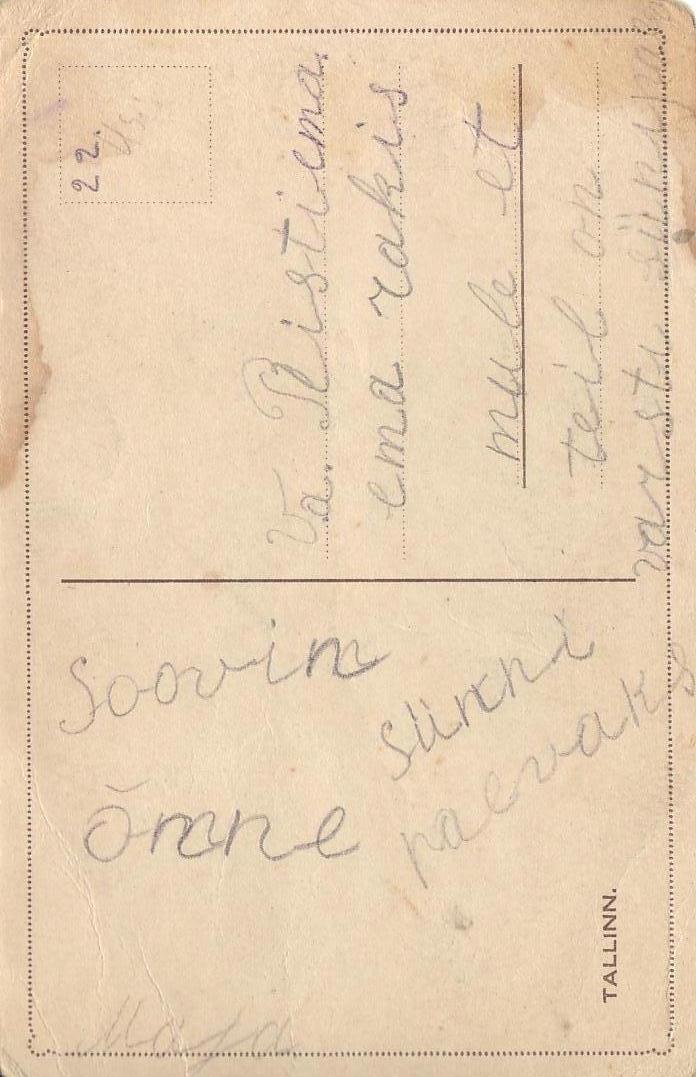 22.
Va. Ristiema.
ema rakis
mule et
teil on
varsti sünnipäe
Soovim
õnne
sünni
paevaks
Maja
TALLINN.